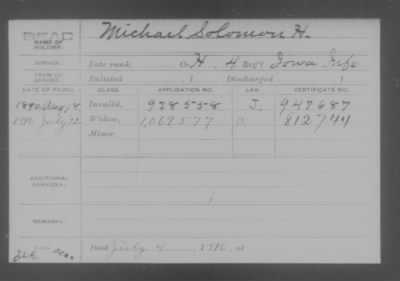 DEAD
NAME OF SOLDIER: Michael Solomon H.
SERVICE: Late rank, Co. H. 4 Reg't Iowa Inf.
TERM OF SERVICE: Enlisted , 1 Discharged , 1
DATE OF FILING. CLASS. APPLICATION NO. LAW. CERTIFICATE NO.
1890 Aug 18 Invalid, 938558 J 947687
1916 July 22 Widow, 1,069577 812744
Minor,
ADDITIONAL SERVICES:
REMARKS:
Died July 4, 1916, at